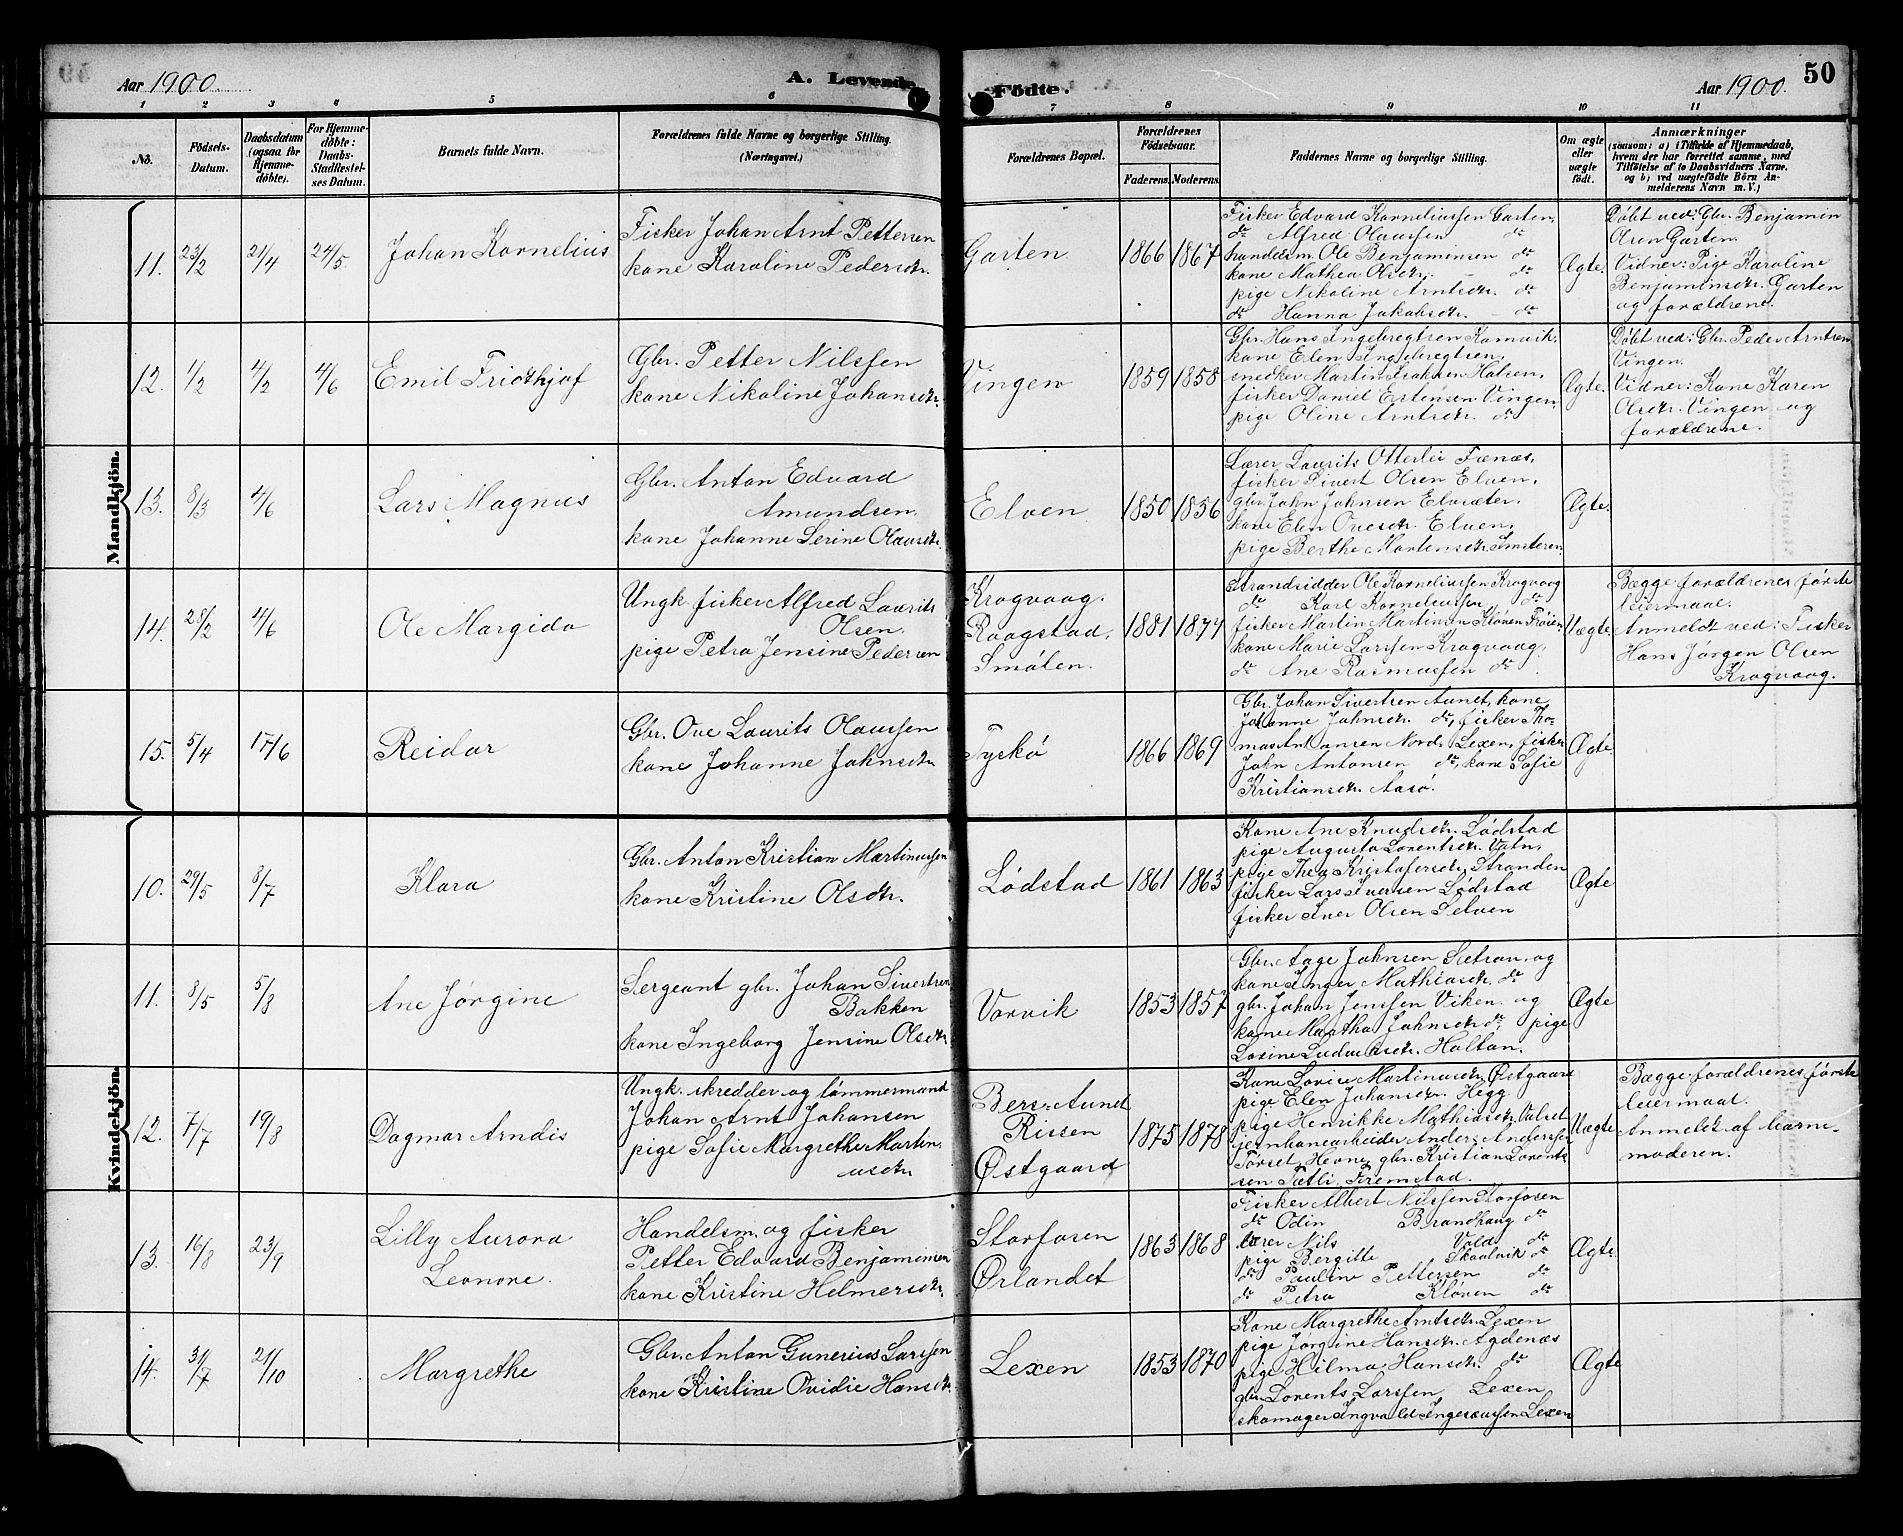 Aar 1900. A. Levende Födte. Aar 1900. 50
1 2 3 4 5 6 7 8 9 10 11
No.
Födsels-
Datum.
Daabsdatum
(ogsaa for
Hjemme-
döbte).
For Hjemme-
döbte:
Daabs-
Stadfæstel-
ses Datum.
Barnets fulde Navn.
Forældrenes fulde Navne og borgerlige Stilling.
(Næringsvei.)
Forældrenes Bopæl.
Forældrenes
Födselsaar.
Faderens. Moderens.
Faddernes Navne og borgerlige Stilling.
Om ægte
eller
uægte
födt.
Anmærkninger
(saasom: a) i Tilfælde af Hjemmedaab,
hvem der har forrettet samme, med
Tilföielse af to Daabsvidners Navne,
og b) ved uægtefödte Börn An-
melderens Navn m. V.)
Mandkjön.
11. 23/2 21/4 24/5 Johan Kornelius
Fisker Johan Arnt Pettersen
kone Karoline Pedersdtr.
Garten 1866 1867
Fisker Edvard Korneliussen Garten,
do Alfred Olaussen do
handelsm. Ole Benjaminsen do
kone Mathea Olsdtr. - do
pige Nikoline Arntsdtr. do
do Hanna Jakobsdtr. - do
Ægte.
Døbt ved: Gbr. Benjamin
Olsen Garten.
Vidner: Pige Karoline
Benjaminsdtr. Garten
og forældrene.
12. 1/2 4/2 4/6 Emil Fridthjof
Gbr. Petter Nilssen
kone Nikoline Johansdtr.
Vingen 1859 1858
Gbr. Hans Ingebregtsen Kamvik,
kone Elen Ingebregtsen,
snedker Martin Isaksen Hatsen,
fisker Daniel Estensen Vingen,
pige Oline Arntsdtr. do
Ægte.
Døbt ved: Gbr. Peder Arntsen
Vingen.
Vidner: Kone Karen
Olsdtr. Vingen og
forældrene.
13. 8/3 4/6 Lars Magnus
Gbr. Anton Edvard
Amundsen.
kone Johanne Serine Olausdtr.
Elven 1850 1856
Lærer Laurits Otterlei Fænæs,
fisker Sivert Olsen Elven,
gbr. John Johnsen Elvsæter,
kone Elen Ovesdtr. Elven,
pige Berthe Martensdtr. Imsteren
Ægte.
14. 28/2 4/6 Ole Margido
Ungk. fisker Alfred Laurits
Olsen.
pige Petra Jensine Pedersen
Kragvaag.
Raagstad,
Smølen. 1881 1877
Strandsidder Ole Korneliussen Kragvaag
do Karl Korneliussen do
fisker Martin Martinsen Kløven Frøien
kone Marie Larssen Kragvaag,
do Ane Rasmussen do
Uægte
Begge forældrenes første
leiermaal.
Anmeldt ved: Fisker
Hans Jørgen Olsen
Kragvaag.
15. 5/4 17/6 Reidar
Gbr. Ove Laurits Olaussen
kone Johanne Johnsdtr.
Tyskø 1866 1869
Gbr. Johan Sivertsen Aunet, kone
Johanne Johnsdtr. do, fisker Tho-
mas Antonsen Nord. Lexen, fisker
John Antonsen do, kone Sofie
Kristiansdtr. Aasø.
Ægte
Kvindekjön.
10. 29/5 8/7 Klara
Gbr. Anton Kristian Martinussen
kone Kristine Olsdtr.
Lødstad 1861 1863
Kone Ane Knudsdtr. Lødstad
pige Augusta Lorentsdtr. Vatn,
pige Thea Kristofersdtr. Stranden
fisker Lars Iversen Lødstad
fisker Iver Olsen Selven
Ægte
11. 8/5 5/8 Ane Jørgine
Sergeant gbr. Johan Sivertsen
Bakken
kone Ingeborg Jensine Olsdtr.
Vorvik 1853 1857
Gbr. Aage Johnsen Sætran, og
kone Inger Mathiasdtr. do
gbr. Johan Jenssen Viken og
kone Martha Johnsdtr. do pige
Losine Ludviksdtr. Holtan.
Ægte
12. 7/7 19/8 Dagmar Arndis
Ungk. skredder og tømmermand
Johan Arnt Johansen
pige Sofie Margrethe Martin
usdtr.
Bers-Aunet
Rissen
Østgaard 1875 1878
Kone Lovise Martinusdtr. Østgaard
pige Elen Johansdtr. Hegg
pige Henrikke Mathiasdtr. Valset
jernbanearbeider Anders Anderssen
Torset, Hevne, gbr. Kristian Lorents
sen Sætli, Fremstad.
Uægte
Begge forældrenes første
leiermaal.
Anmeldt af barne-
moderen.
13. 16/8 23/9 Lilly Aurora
Leonore.
Handelsm. og fisker
Petter Edvard Benjaminsen
kone Kristine Helmersdtr.
Storfosen
Ørlandet 1863 1868
Fisker Albert Nilssen Storfosen
do Odin Brandhaug do
lærer Nils Vold do
pige Bergitte Skaalvik do
do Pauline Pettersen do
do Petra Kløven do
Ægte.
14. 31/7 21/10 Margrethe
Gbr. Anton Gunerius Larssen
kone Kristine Ovidie Hansdtr.
Lexen 1853 1870
Kone Margrethe Arntsdtr. Lexen
pige Jørgine Hansdtr. Agdenæs
pige Hilma Hansdtr. do
gbr. Lorents Larssen Lexen,
skomager Ingvald Ingesæussen Lexen
Ægte